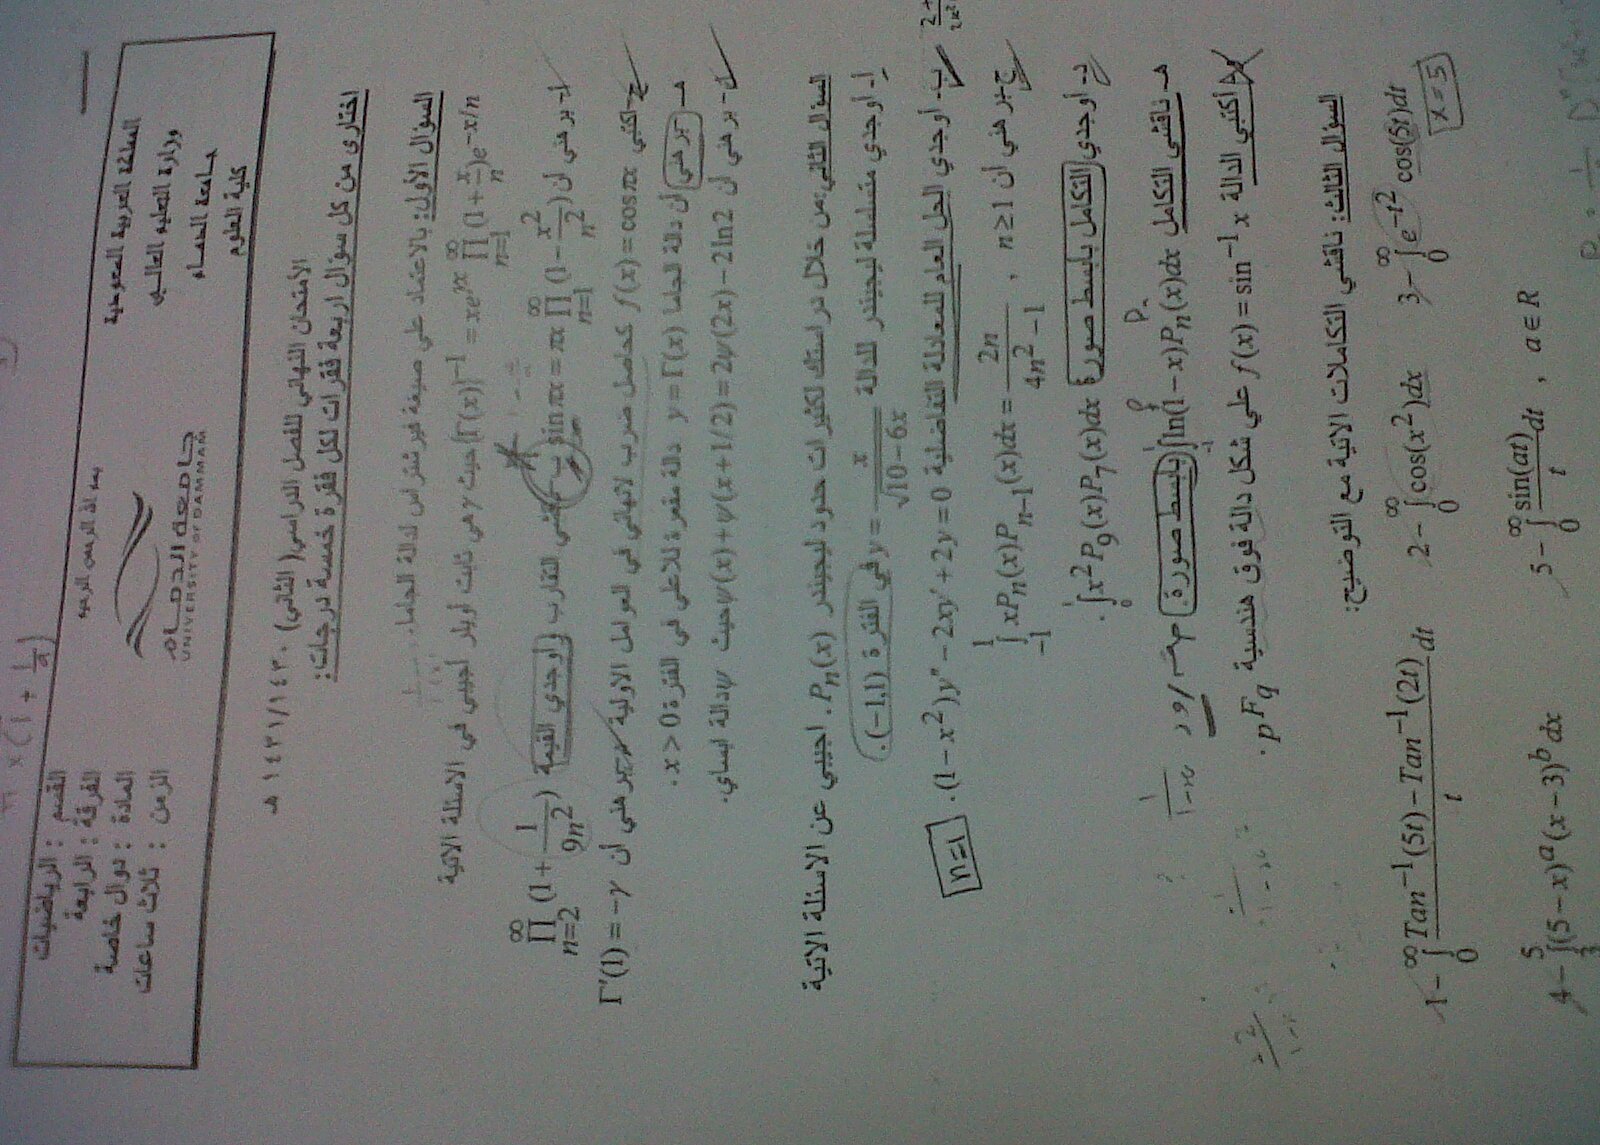 المملكة العربية السعودية
وزارة التعليم العالي
جامعة الدمام
كلية العلوم
بسم الله الرحمن الرحيم
جامعة الدمام
UNIVERSITY OF DAMMAM
القسم : الرياضيات
الفرقة : الرابعة
المادة : دوال خاصة
الزمن : ثلاث ساعات
الأمتحان النهائي للفصل الدراسي (الثاني) ١٤٣١/١٤٣٠ هـ
اختاري من كل سؤال اربعة فقرات لكل فقرة خمسة درجات:
السؤال الأول: بالاعتماد على صيغة فيرشتراس لدالة الجاما.
[Γ(x)]^{-1} = xe^{γx} ∏_{n=1}^{∞} (1 + x/n)e^{-x/n} حيث γ هي ثابت اويلر اجيبي في الاسئلة الاتية
ا- برهني ان sin πx = πx ∏_{n=1}^{∞} (1 - x²/n²) ب- التقارب و أوجدي القيمة ∏_{n=2}^{∞} (1 + 1/(9n²))
ج- اكتبي f(x) = cos πx كحاصل ضرب لانهائي في العوامل الاولية د- برهني أن Γ'(1) = -γ
هـ- برهني أن دالة الجاما y = Γ(x) دالة مقعرة للاعلى في الفترة x > 0 .
ل- برهني ان ψ(x) + ψ(x + 1/2) = 2ψ(2x) - 2 ln 2 حيث ψ دالة ابساي.
السؤال الثاني: من خلال دراستك لكثيرات حدود ليجيندر P_n(x) . اجيبي عن الاسئلة الاتية
ا- أوجدي متسلسلة ليجيندر للدالة y = x/√(10 - 6x) في الفترة (-1,1) .
ب- أوجدي الحل العام للمعادلة التفاضلية (1 - x²)y'' - 2xy' + 2y = 0 . n=1
ج- برهني أن ∫_{-1}^{1} xP_n(x)P_{n-1}(x)dx = 2n/(4n² - 1) , n ≥ 1
د- أوجدي التكامل بابسط صورة ∫_{0}^{1} x²P_9(x)P_7(x)dx .
هـ- ناقشي التكامل ∫_{-1}^{1} ln(1 - x)P_n(x)dx بابسط صورة.
و- أكتبي الدالة f(x) = sin⁻¹ x على شكل دالة فوق هندسية pFq .
السؤال الثالث: ناقشي التكاملات الاتية مع التوضيح:
1 - ∫_{0}^{∞} (Tan⁻¹(5t) - Tan⁻¹(2t))/t dt 2 - ∫_{0}^{∞} cos(x²)dx 3 - ∫_{0}^{∞} e^{-t²} cos(5t)dt
x = 5
4 - ∫_{3}^{5} (5 - x)^a (x - 3)^b dx 5 - ∫_{0}^{∞} sin(at)/t dt , a ∈ R